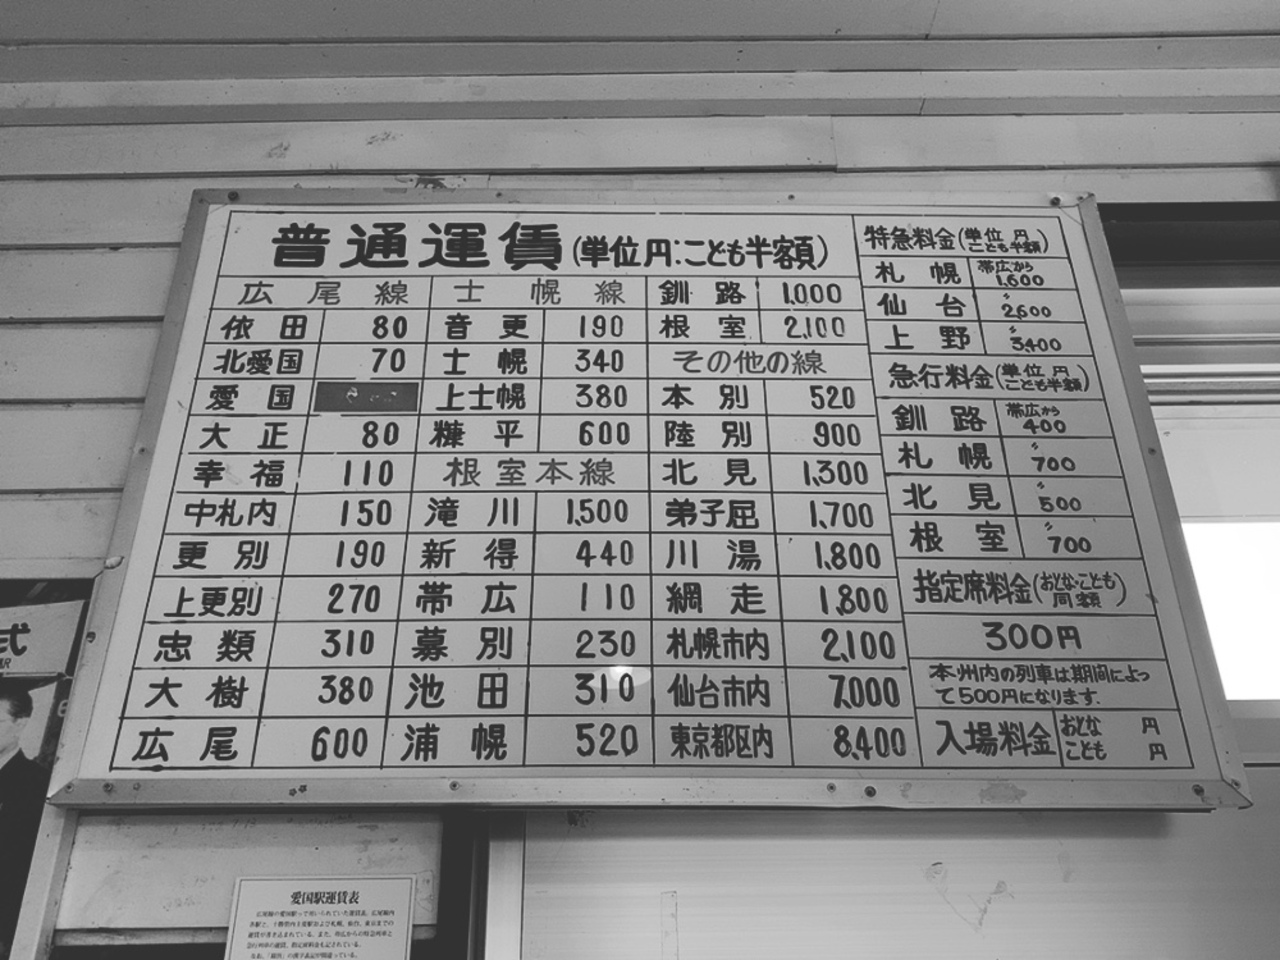 普通運賃(単位 円:こども半額)
広尾線
依田 80
北愛国 70
愛国
大正 80
幸福 110
中札内 150
更別 190
上更別 270
忠類 310
大樹 380
広尾 600
士幌線
音更 190
士幌 340
上士幌 380
糠平 600
根室本線
滝川 1,500
新得 440
帯広 110
幕別 230
池田 310
浦幌 520
釧路 1,000
根室 2,100
その他の線
本別 520
陸別 900
北見 1,300
弟子屈 1,700
川湯 1,800
網走 1,800
札幌市内 2,100
仙台市内 7,000
東京都区内 8,400
特急料金(単位 円 こども半額)
札幌 帯広から 1,600
仙台 〃 2,600
上野 〃 3,400
急行料金(単位 円 こども半額)
釧路 帯広から 400
札幌 〃 700
北見 〃 500
根室 〃 700
指定席料金(おとな・こども 同額)
300円
本州内の列車は期間によっ
て500円になります.
入場料金 おとな 円
こども 円
式
駅
愛国駅運賃表